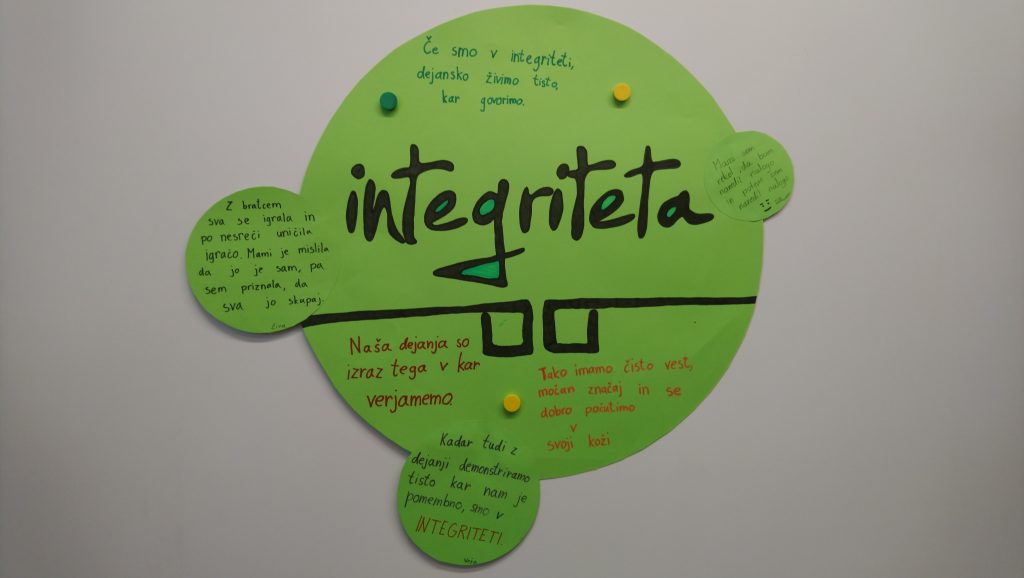 Če smo v integriteti,
dejansko živimo tisto,
kar govorimo.
integriteta
Mami sem
rekel, da bom
naredil nalogo
in potem sem
naredil nalogo
Z bratcem
sva se igrala in
po nesreči uničila
igračo. Mami je mislila
da jo je sam, pa
sem priznala, da
sva jo skupaj.
Živa
Naša dejanja so
izraz tega v kar
verjamemo.
Tako imamo čisto vest,
močan značaj in se
dobro počutimo
v
svoji koži
Kadar tudi z
dejanji demonstriramo
tisto kar nam je
pomembno, smo v
INTEGRITETI.